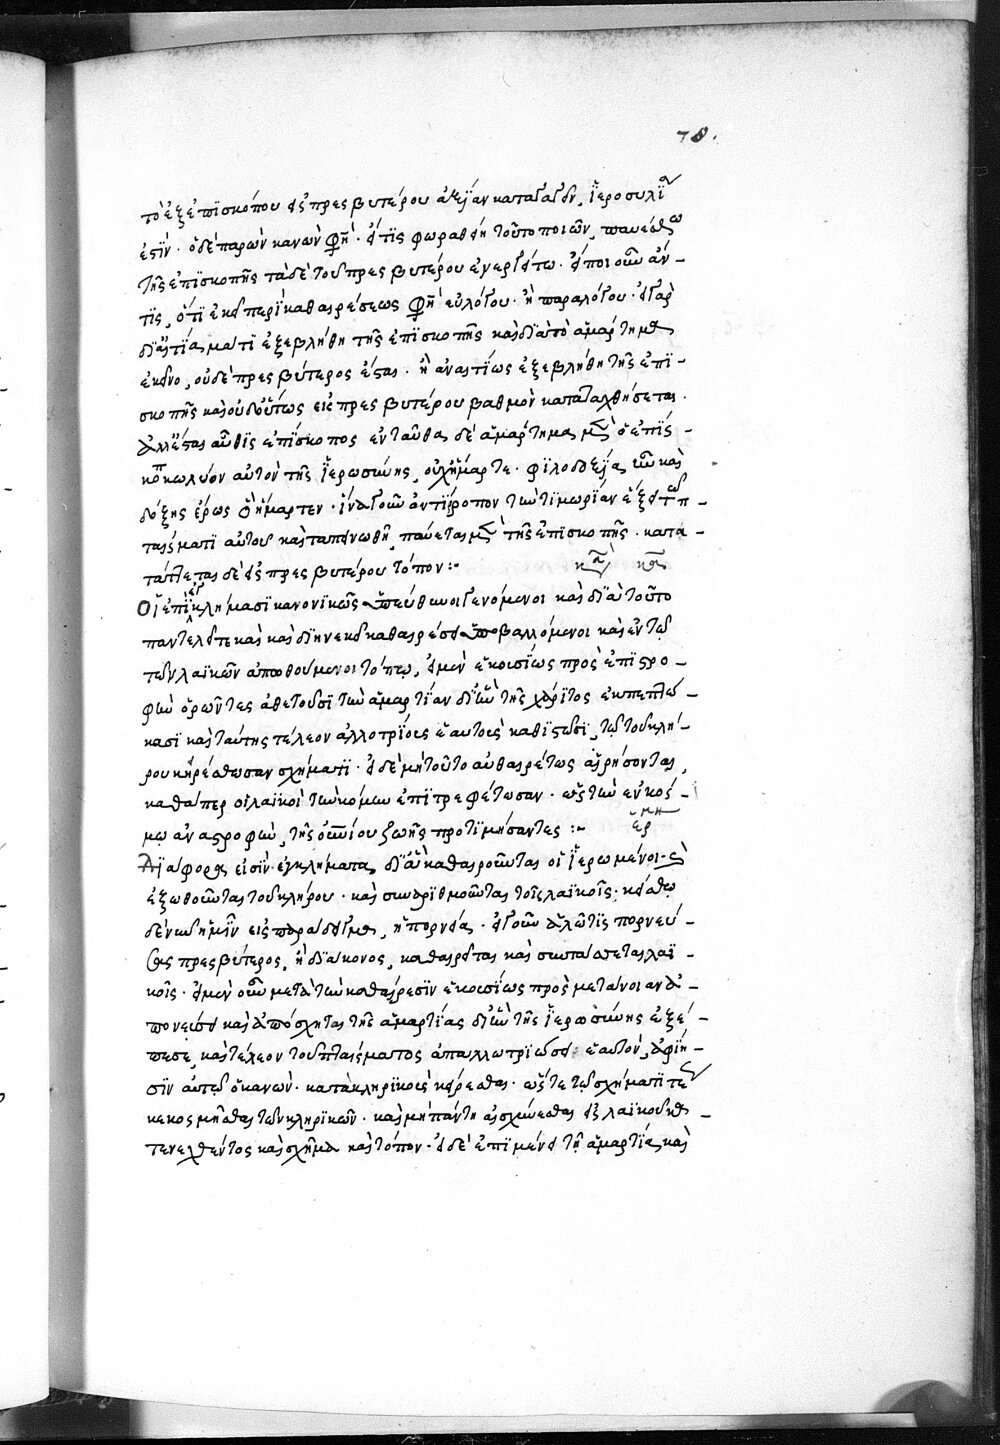 78.
τὸ ἐξ ἐπισκόπου εἰς πρεσβυτέρου ἀξίαν καταγαγεῖν, ἱεροσυλία
ἐστίν· ὁ δὲ παρὼν κανών φησιν· εἴ τις φωραθείη τοῦτο ποιῶν, παυέσθω
τῆς ἐπισκοπῆς τὰ δὲ τοῦ πρεσβυτέρου ἐνεργείτω· εἴποι οὖν ἄν –
τις, ὅτι ἐκεῖ περὶ καθαιρέσεως φησὶ εὐλόγου· ἢ παραλόγου· εἰ γὰρ
δι' αἰτίαμά τι ἐξεβλήθη τῆς ἐπισκοπῆς καὶ διὰ τὸ ἁμάρτημα
ἐκεῖνο, οὐδὲ πρεσβύτερος ἔσται· ἢ ἀναιτίως ἐξεβλήθη τῆς ἐπι –
σκοπῆς καὶ οὐδ' οὕτως εἰς πρεσβυτέρου βαθμὸν καταταχθήσεται·
ἀλλ' ἔσται αὖθις ἐπίσκοπος ἐνταῦθα δὲ ἁμάρτημα μὲν ὁ ἐπίσ –
κοπος κωλύον αὐτὸν τῆς ἱερωσύνης, οὐχ ἥμαρτε· φιλοδοξία οὖν καὶ
δόξης ἔρως ὃ ἥμαρτεν· ἵνα γοῦν ἀντίρροπον τὴν τιμωρίαν ἕξει τῷ π –
ταίσματι αὐτοῦ καὶ ταπεινωθῇ, παύεται μὲν τῆς ἐπισκοπῆς· κατα –
τάττεται δὲ εἰς πρεσβυτέρου τόπον :–
Οἱ ἐπὶ ἐγκλήμασι κανονικῶς ὑπεύθυνοι γενόμενοι καὶ διὰ τοῦτο
παντελεῖ τε καὶ διηνεκεῖ καθαιρέσει ὑποβαλλόμενοι καὶ ἐν τῷ
τῶν λαϊκῶν ἀπωθούμενοι τόπῳ, εἰ μὲν ἑκουσίως πρὸς ἐπιστρο –
φὴν ὁρῶντες ἀθετοῦσι τὴν ἁμαρτίαν δι' ἣν τῆς χάριτος ἐκπεπτώ –
κασι καὶ ταύτης τέλεον ἀλλοτρίους ἑαυτοὺς καθιστῶσι, τῷ τοῦ κλή –
ρου κειρέσθωσαν σχήματι· εἰ δὲ μὴ τοῦτο αὐθαιρέτως αἱρήσονται,
καθάπερ οἱ λαϊκοὶ τὴν κόμην ἐπιτρεφέτωσαν· ὡς τὴν ἐν κόσ –
μῳ ἀναστροφὴν, τῆς οὐρανίου ζωῆς προτιμήσαντες :–
Διάφορα εἰσὶν ἐγκλήματα, δι' ἃ καθαιροῦνται οἱ ἱερωμένοι· καὶ
ἐξωθοῦνται τοῦ κλήρου· καὶ συναριθμοῦνται τοῖς λαϊκοῖς· κείσθω
δὲ νῦν ἡμῖν εἰς παράδειγμα, ἡ πορνεία· εἰ γοῦν ἁλῷ τις πορνεύ –
σας πρεσβύτερος, ἢ διάκονος, καθαιρεῖται καὶ συντάσσεται λαϊ –
κοῖς· εἰ μὲν οὖν μετὰ τὴν καθαίρεσιν ἑκουσίως πρὸς μετάνοιαν ἀ –
πονεύσει καὶ ἀπόσχηται τῆς ἁμαρτίας δι' ἣν τῆς ἱερωσύνης ἐξέ –
πεσε, καὶ τέλεον τοῦ πταίσματος ἀπαλλοτριώσει ἑαυτόν, ἀφίη –
σιν αὐτῷ ὁ κανών· κατὰ κληρικοὺς κείρεσθαι· ὥστε τῷ σχήματι τε
κεκοσμῆσθαι τῶν κληρικῶν· καὶ μὴ πάντη αἰσχύνεσθαι εἰς λαϊκοῦ κα –
τενεχθέντος καὶ σχῆμα καὶ τόπον· εἰ δὲ ἐπιμένει τῇ ἁμαρτίᾳ καὶ